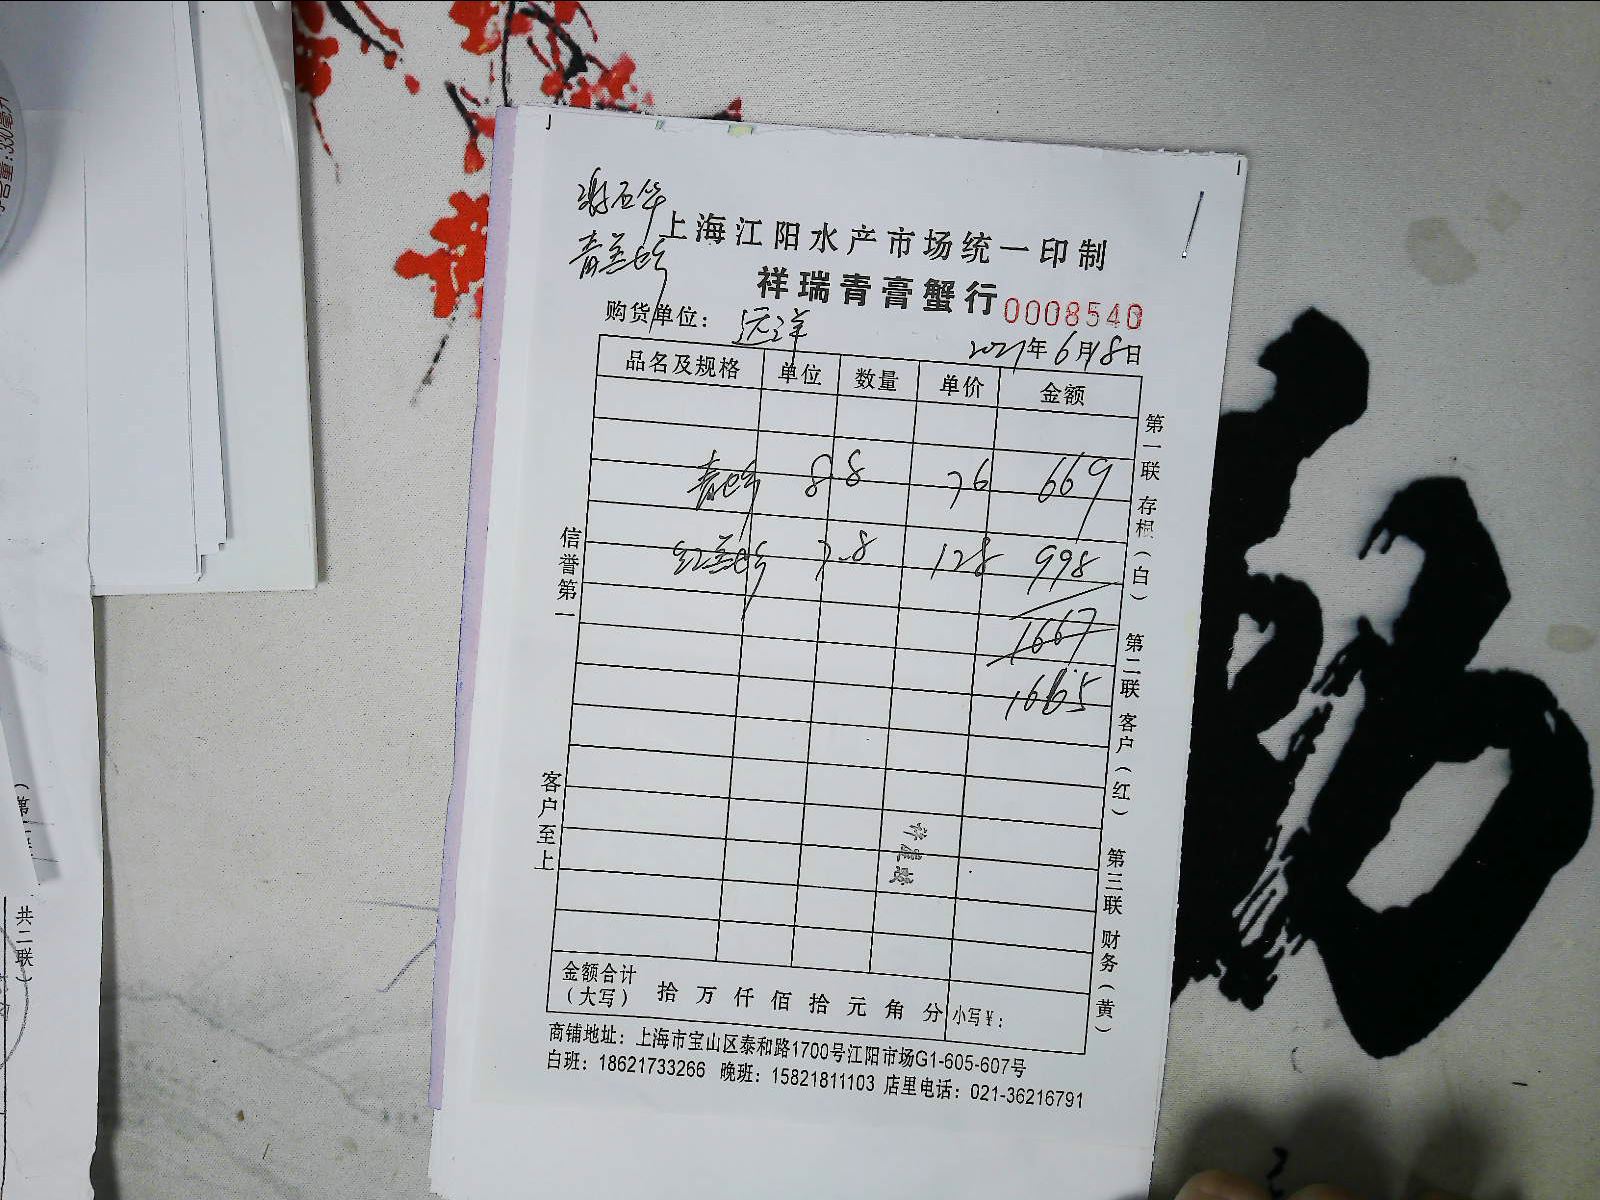 上海江阳水产市场统一印制
祥瑞青膏蟹行 0008540
购货单位： 远洋
2021年6月18日
品名及规格 单位 数量 单价 金额
8.8 76 669
红膏 7.8 128 998
1667
1665
金额合计（大写） 拾 万 仟 佰 拾 元 角 分 小写￥：
商铺地址：上海市宝山区泰和路1700号江阳市场G1-605-607号
白班：18621733266 晚班：15821811103 店里电话：021-36216791
信誉第一
客户至上
第一联 存根（白）
第二联 客户（红）
第三联 财务（黄）
共二联）